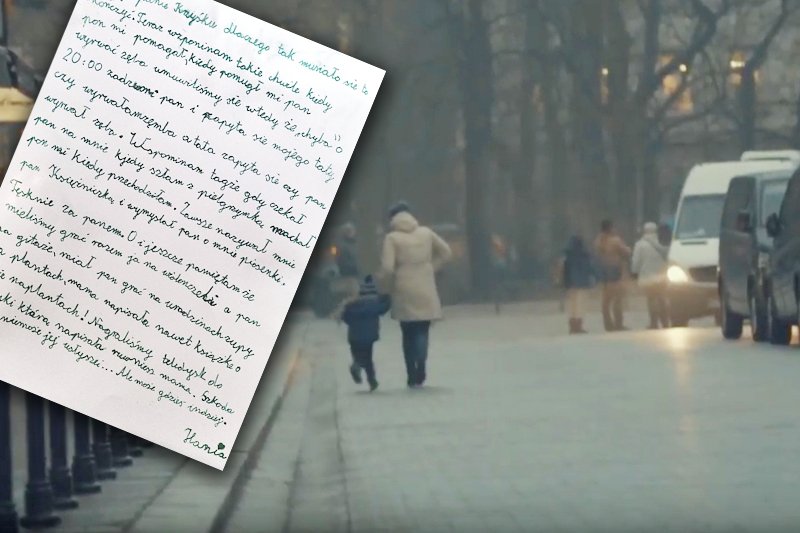 Panie Krzyśku dlaczego tak musiało się to
skończyć. Teraz wspominam takie chwile kiedy
pan mi pomagał, kiedy pomógł mi pan
wyrwać zęba umuwiliśmy się wtedy że „chyba" o
20:00 zadzwoni pan i zapyta się mojego taty
czy wyrwałam zęmba a tata zapyta się czy pan
wyrwał zęba. Wspominam także gdy czekał
pan na mnie kjedy szłam z pielgrzymką, machał
pan mi kiedy przehodziłam. Zawsze nazywał mnie
pan Księżniczka i wymyślał pan o mnie piosenki.
Tęsknie za panem. O i jeszcze pamiętam że
mieliśmy grać razem ja na wiolonczeli a pan
na gitaże, miał pan grać na urodzinach zupy
na plantach, mama napisała nawet książkę o
zupie na plantach! Nagraliśmy teledysk do
która napisała również mama. Szkoda
jej usłyszeć... Ale może gdzieś indziej.
Hania